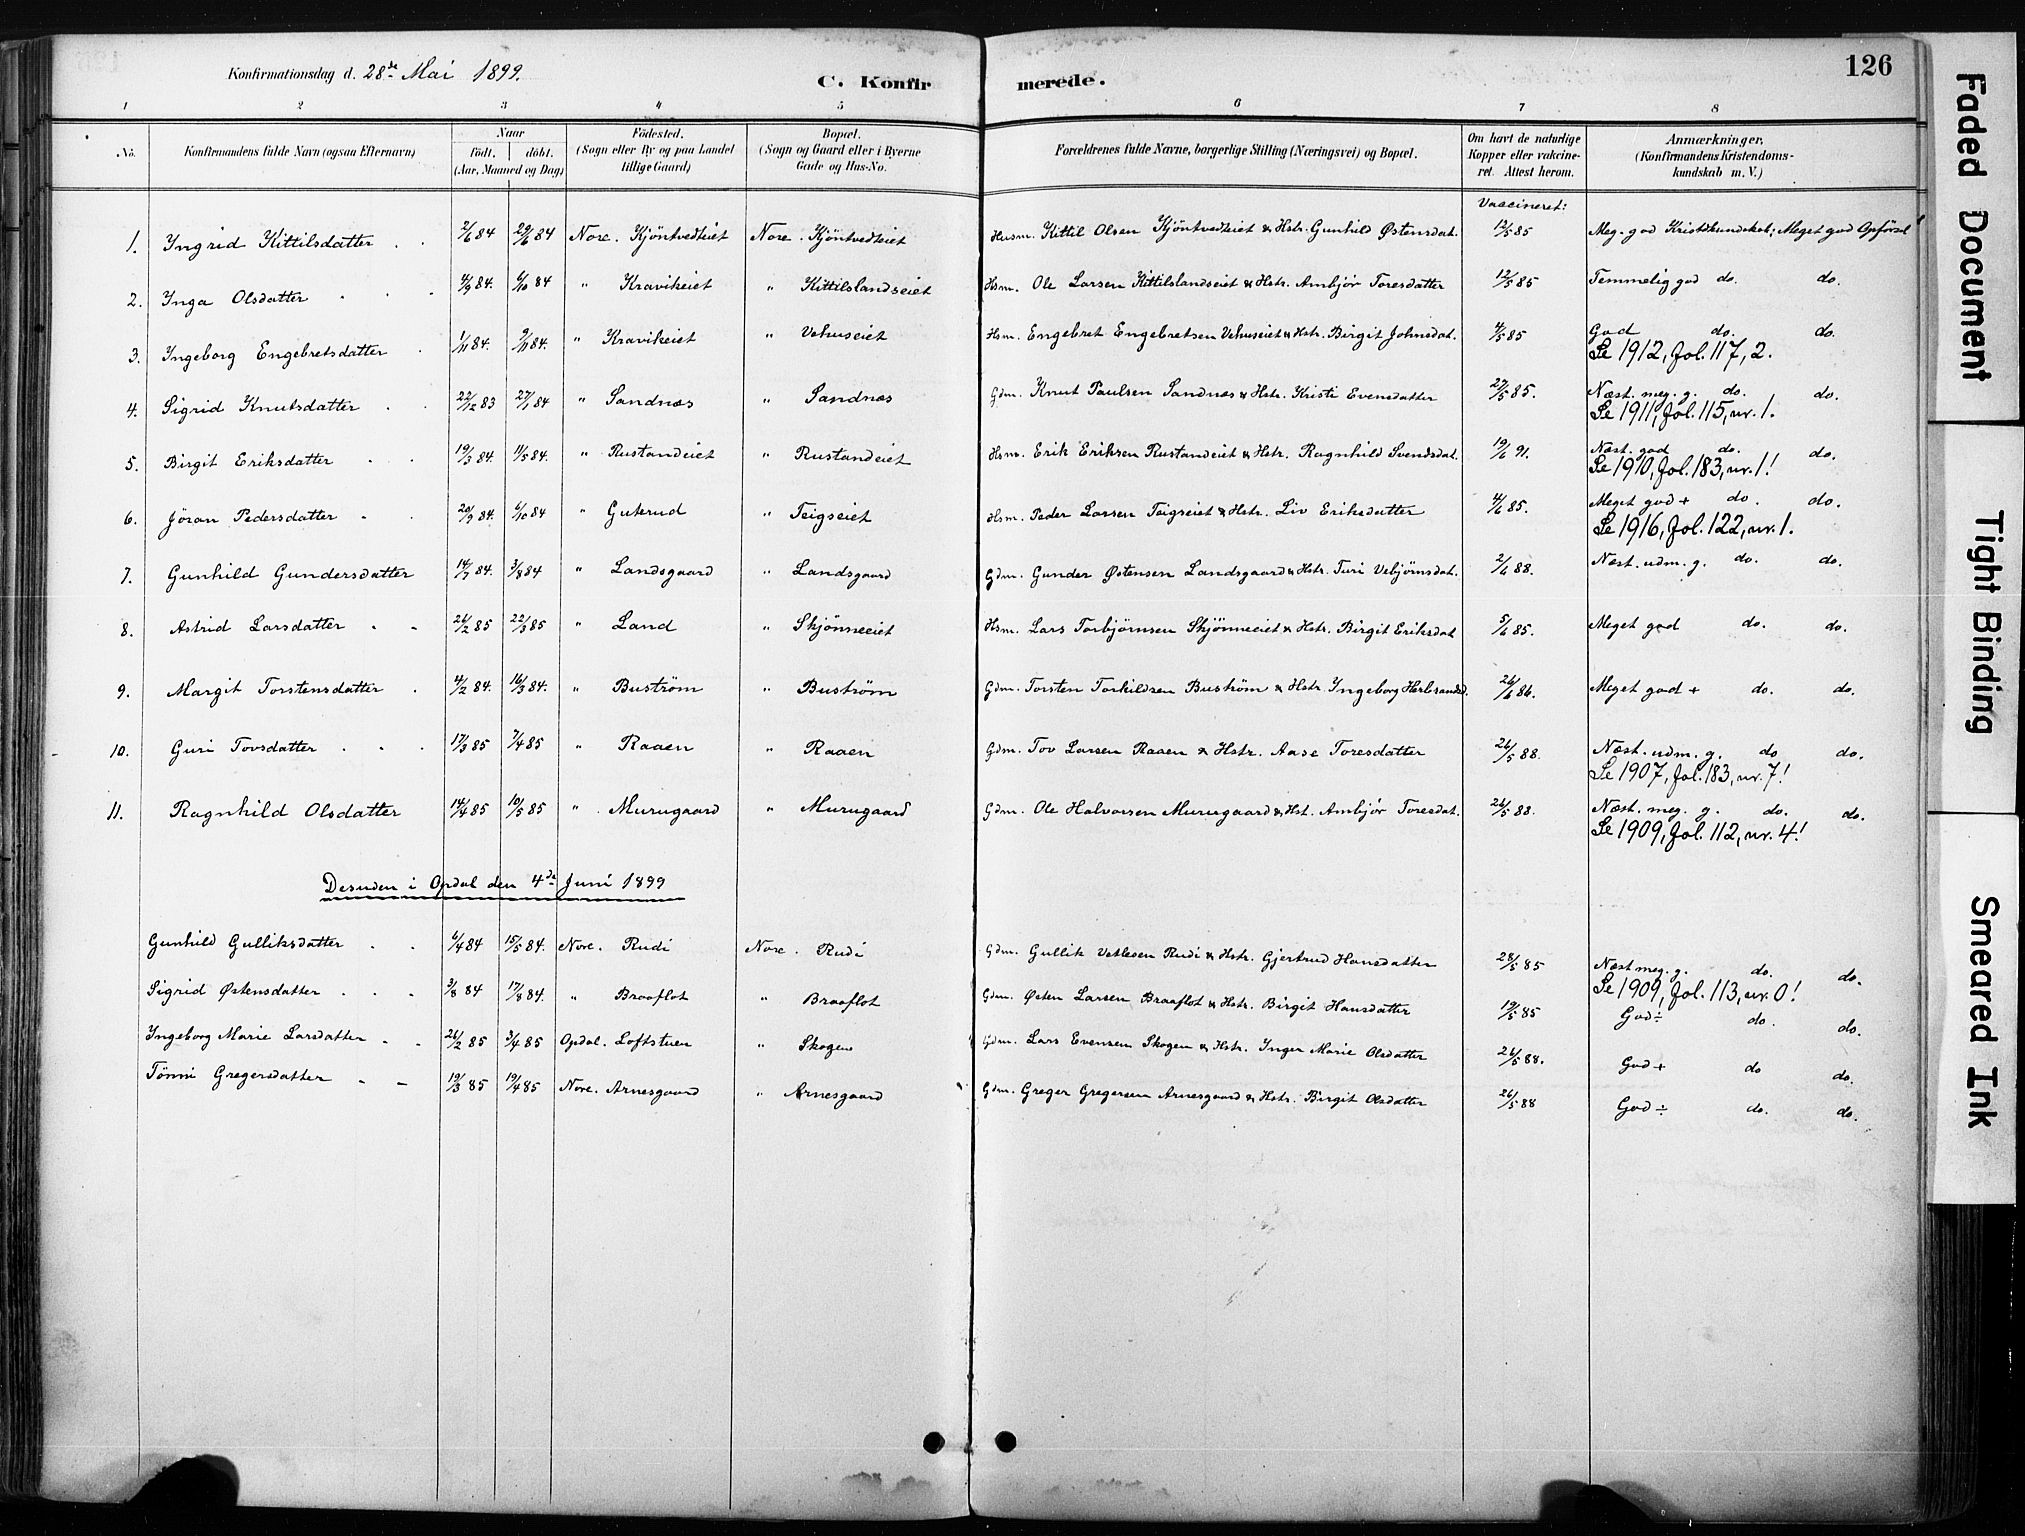 Konfirmationsdag d. 28de Mai 1899.
C. Konfirmerede.
126
1 2 3 4 5 6 7 8
No. Konfirmandens fulde Navn (ogsaa Efternavn) Naar födt. döbt. (Aar, Maaned og Dag) Födested. (Sogn eller By og paa Landet tillige Gaard) Bopæl. (Sogn og Gaard eller i Byerne Gade og Hus-No. Forældrenes fulde Navne, borgerlige Stilling (Næringsvei) og Bopæl. Om havt de naturlige Kopper eller vakcineret. Attest herom. Anmærkninger. (Konfirmandens Kristendomskundskab m. V.)
Vaccineret:
1. Ingrid Kittilsdatter 2/6 84 29/6 84 Nore. Kjöntvedteiet Nore. Kjöntvedteiet Husm. Kittil Olsen Kjöntvedteiet & Hstr. Gunhild Østensdat. 12/5 85 Meg. god Kristdkundskab; Meget god Opförsel
2. Inga Olsdatter 4/9 84. 6/10 84 " Kravikeiet " Kittilslandseiet Hsm. Ole Larsen Kittilslandseiet & Hstr. Ambjör Toresdatter 12/5 85 Temmelig god do. do.
3. Ingeborg Engebretsdatter 1/11 84. 9/11 84. " Kravikeiet " Vehuseiet Hsm. Engebret Engebretsen Vehuseiet & Hstr. Birgit Johnsdat. 4/5 85 God do. do.
Se 1912, fol. 117, 2.
4. Sigrid Knutsdatter 22/12 83 27/1 84 " Sandnæs " Sandnæs Gdm. Knut Paulsen Sandnæs & Hstr. Kristi Evensdatter 27/5 85. Næst. meg. g. do. do.
Se 1911, fol. 115, nr. 1.
5. Birgit Eriksdatter 19/3 84. 11/5 84. " Rustandeiet " Rustandeiet Hsm. Erik Eriksen Rustandeiet & Hstr. Ragnhild Svendsdat. 19/6 91. Næst. god do. do.
Se 1910, fol. 183, nr. 1!
6. Jöran Pedersdatter 20/9 84. 6/10 84 " Guterud " Teigseiet Hsm. Peder Larsen Teigseiet & Hstr. Liv Eriksdatter 4/6 85. Meget god + do. do.
Se 1916, fol. 122, nr. 1.
7. Gunhild Gundersdatter 14/7 84. 3/8 84 " Landsgaard " Landsgaard Gdm. Gunder Østensen Landsgaard & Hstr. Turi Vebjörnsdat. 2/6 88. Næst. udm. g. do. do.
8. Astrid Larsdatter 26/2 85 22/3 85 " Land " Skjönneeiet Hsm. Lars Torbjörnsen Skjönneeiet & Hstr. Birgit Eriksdat. 5/6 85. Meget god do. do.
9. Margit Torstensdatter 4/2 84. 16/3 84. " Buström " Buström Gdm. Torsten Torkildsen Buström & Hstr. Ingeborg Herbrandsd. 26/6 86. Meget god + do. do.
10. Guri Tovsdatter 17/3 85 7/4 85 " Raaen " Raaen Gdm. Tov Larsen Raaen & Hstr. Aase Toresdatter 26/5 88. Næst. udm. g. do do.
Se 1907, fol. 183, nr. 7!
11. Ragnhild Olsdatter 14/4 85 10/5 85 " Murugaard " Murugaard Gdm. Ole Halvorsen Murugaard & Hst. Ambjör Toresdat. 26/5 88. Næst. meg. g. do. do.
Se 1909, fol. 112, nr. 4!
Desuden i Opdal den 4de Juni 1899
Gunhild Gulliksdatter 6/4 84 15/5 84. Nore. Rudi Nore. Rudi Gdm. Gullik Vetlesen Rudi & Hstr. Gjertrud Hansdatter 28/5 85 Næst meg. g. do. do.
Se 1909, fol. 113, nr. 0!
Sigrid Østensdatter 3/8 84 17/8 84. " Braaflot " Braaflot Gdm. Østen Larsen Braaflot & Hstr. Birgit Hansdatter 19/5 85 God ÷ do. do.
Ingeborg Marie Larsdatter 26/2 85 3/4 85 Opdal. Loftstuen " Skogen Gdm. Lars Evensen Skogen & Hstr. Inger Marie Olsdatter 26/5 88. God + do do.
Tönni Gregersdatter 19/3 85 19/4 85 Nore. Arnesgaard " Arnesgaard Gdm. Greger Gregersen Arnesgaard & Hstr. Birgit Olsdatter 26/5 88 God ÷ do. do.
Faded Document
Tight Binding
Smeared Ink